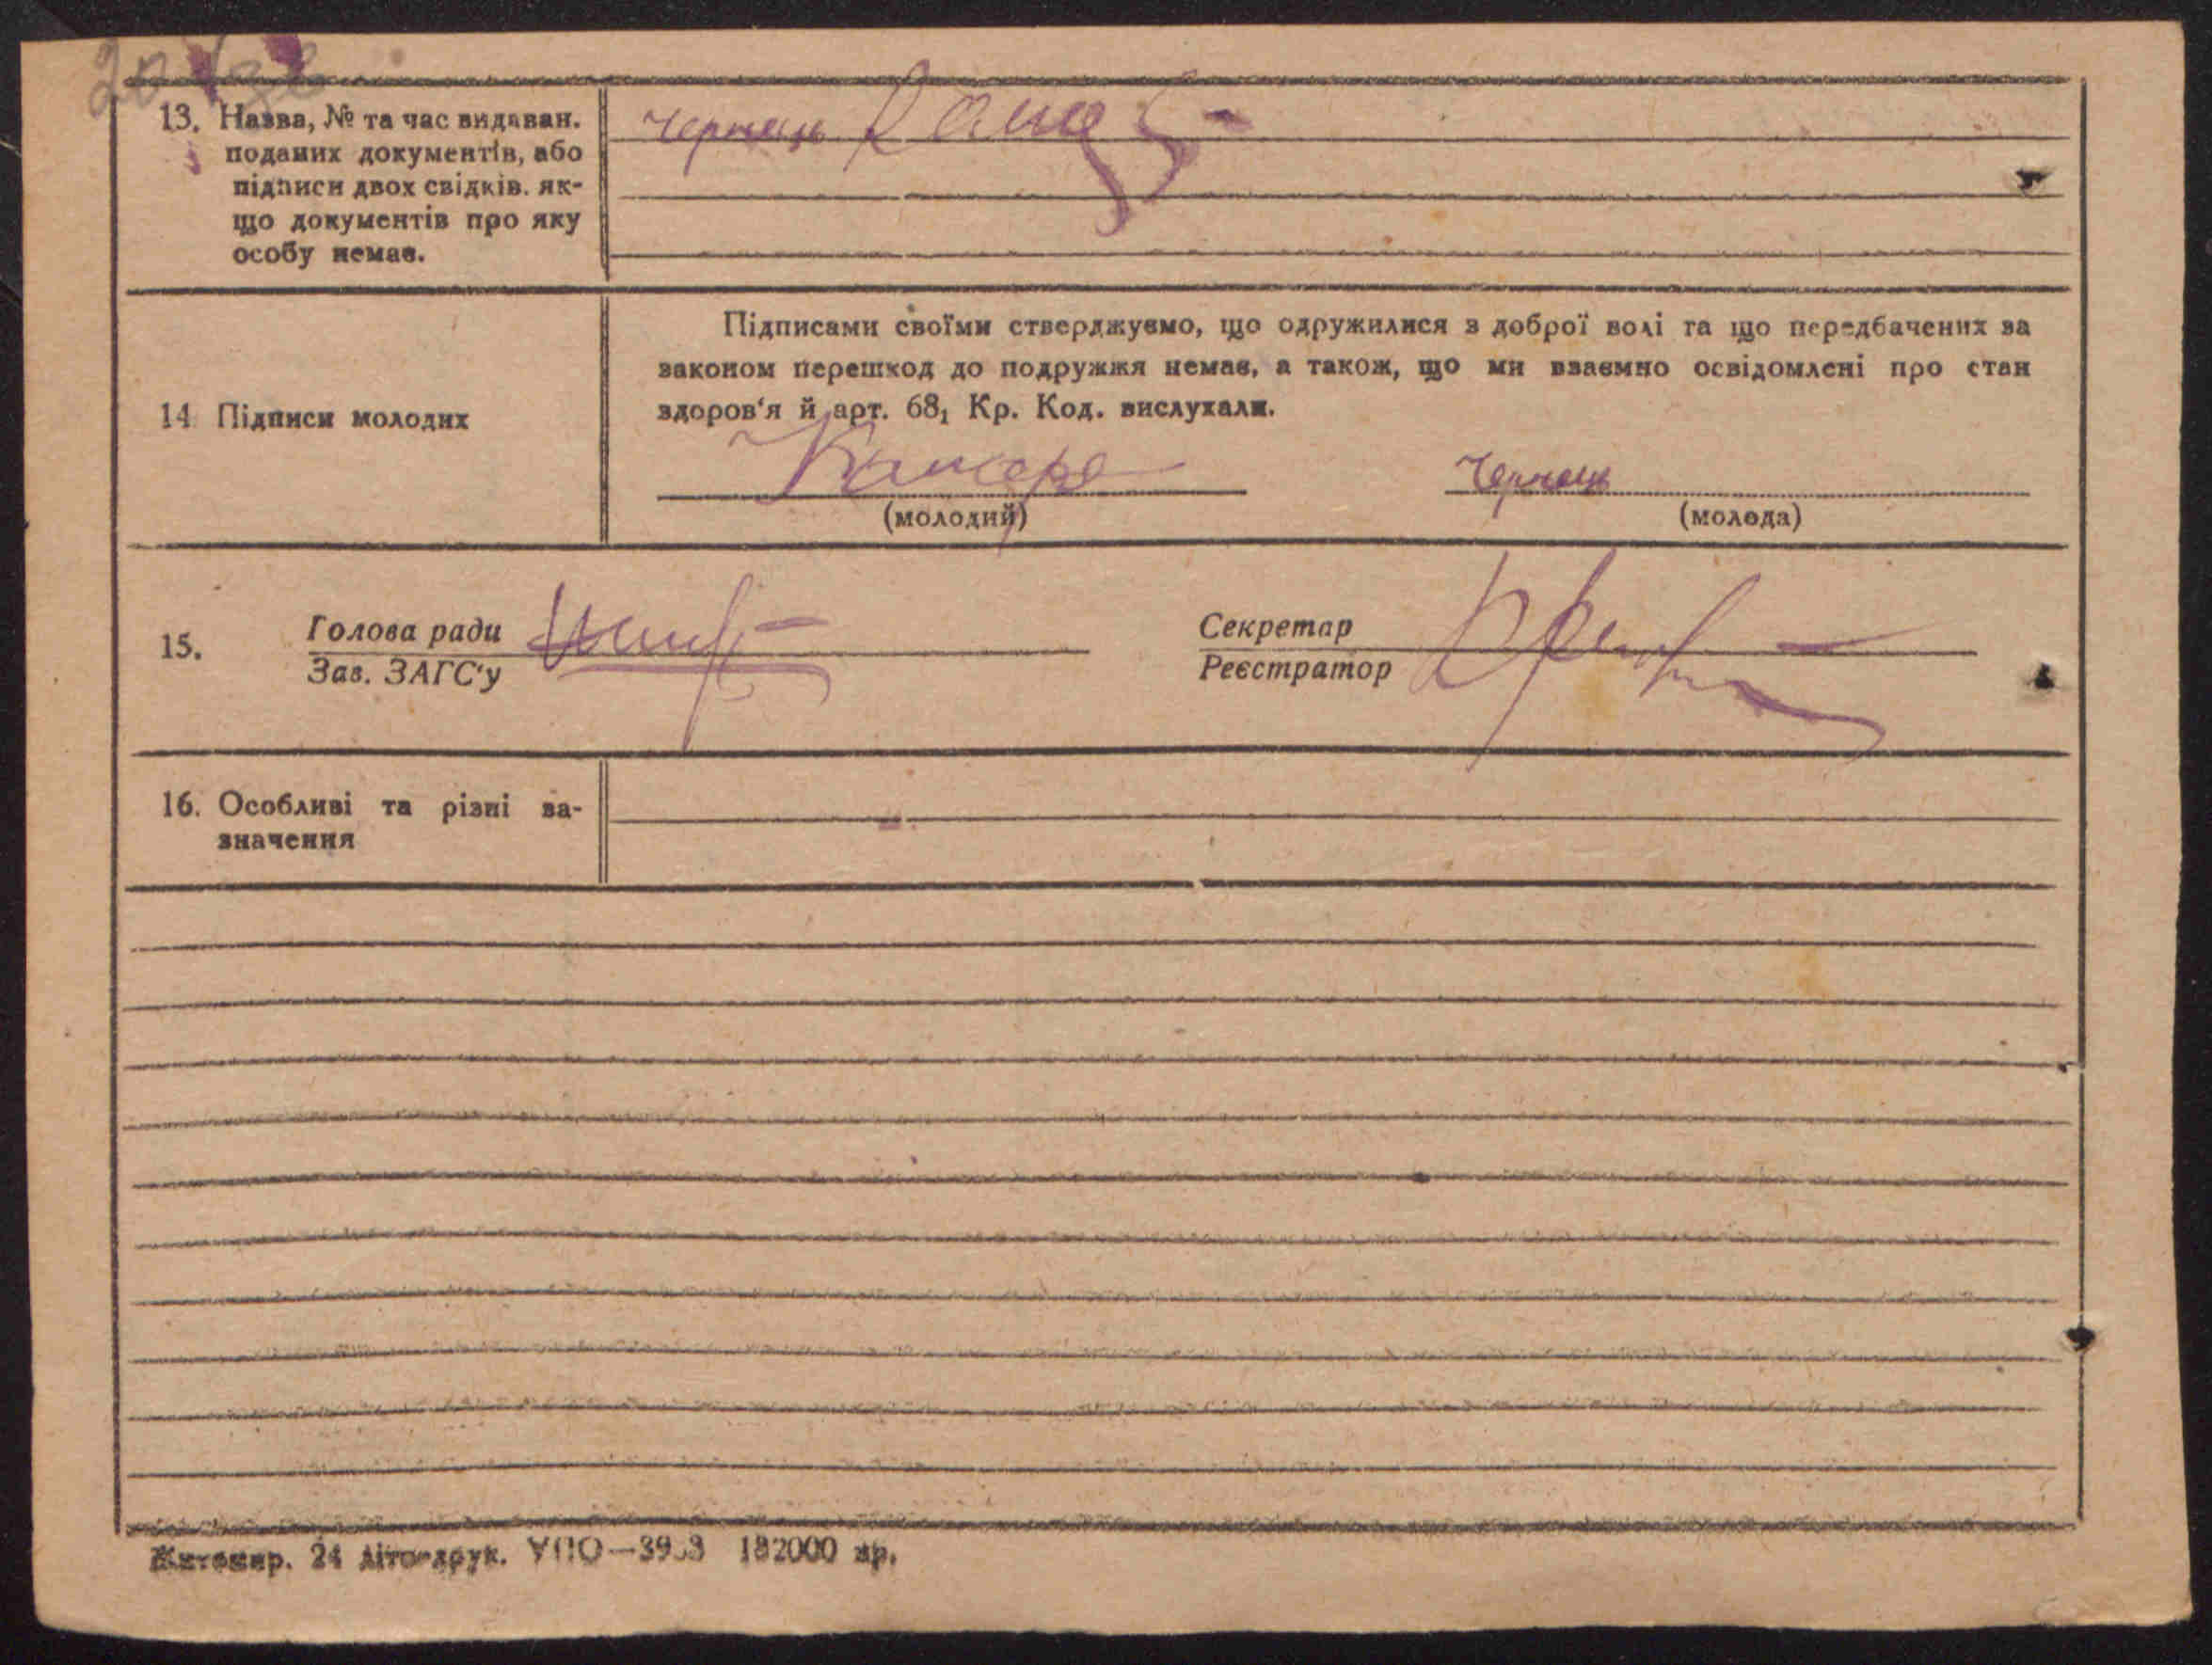 13. Назва, № та час видаван.
поданих документів, або
підписи двох свідків. як-
що документів про яку
особу немає.
Чернець
14 Підписи молодих
Підписами своїми стверджуємо, що одружилися з доброї волі та що передбачених за
законом перешкод до подружжя немає, а також, що ми взаємно освідомлені про стан
здоров'я й арт. 68₁ Кр. Код. вислухали.
Чернець
(молодий) (молода)
15. Голова ради Секретар
Зав. ЗАГС'у Реєстратор
16. Особливі та різні за-
значення
Житомир. 24 літо-друк. УПО—39 3 182000 пр.